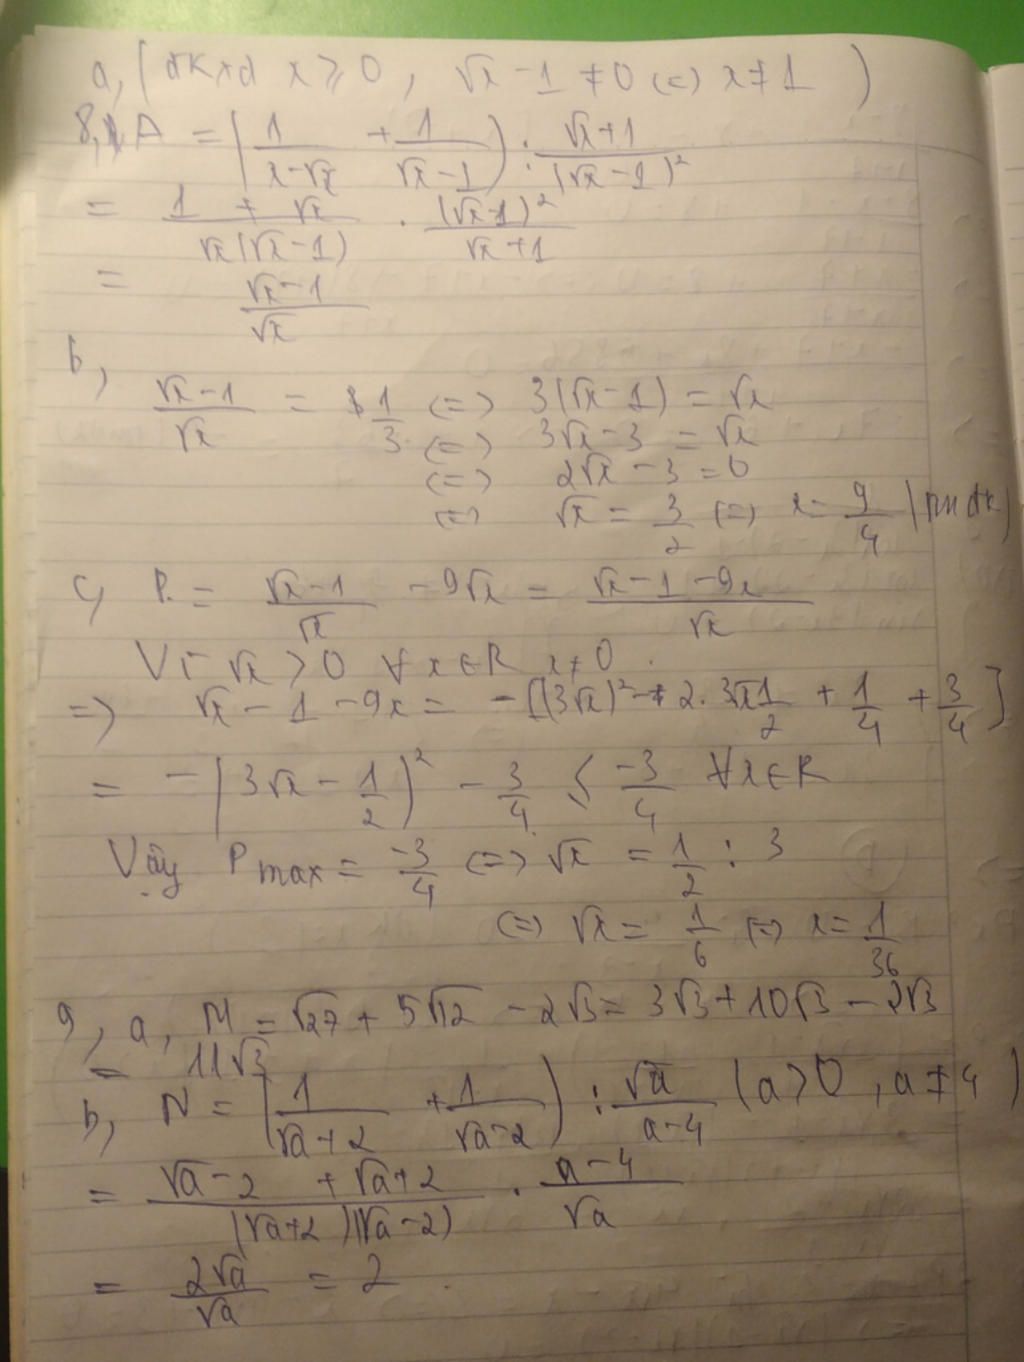 a, (đkxđ x ⩾ 0, √x - 1 ≠ 0 (=) x ≠ 1)
8, A = (1/(x-√x) + 1/(√x-1)) : (√x+1)/(√x-1)²
= (1 + √x)/(√x(√x-1)) . (√x-1)²/(√x+1)
= (√x-1)/√x
b,
(√x-1)/√x = 1/3 (=) 3(√x-1) = √x
(=) 3√x - 3 = √x
(=) 2√x - 3 = 0
(=) √x = 3/2 (=) x = 9/4 (tm đk)
c, P = (√x-1)/√x - 9√x = (√x-1-9x)/√x
Vì √x > 0 ∀x∈R x≠0.
=) √x - 1 - 9x = -[(3√x)² - 2.3√x 1/2 + 1/4 + 3/4]
= -(3√x - 1/2)² - 3/4 ≤ -3/4 ∀x∈R
Vậy Pmax = -3/4 (=) √x = 1/2 : 3
(=) √x = 1/6 (=) x = 1/36
9, a, M = √27 + 5√12 - 2√3 = 3√3 + 10√3 - 2√3
= 11√3
b, N = (1/(√a+2) + 1/(√a-2)) : √a/(a-4) (a>0, a≠4)
= (√a-2 + √a+2)/((√a+2)(√a-2)) . (a-4)/√a
= 2√a/√a = 2.